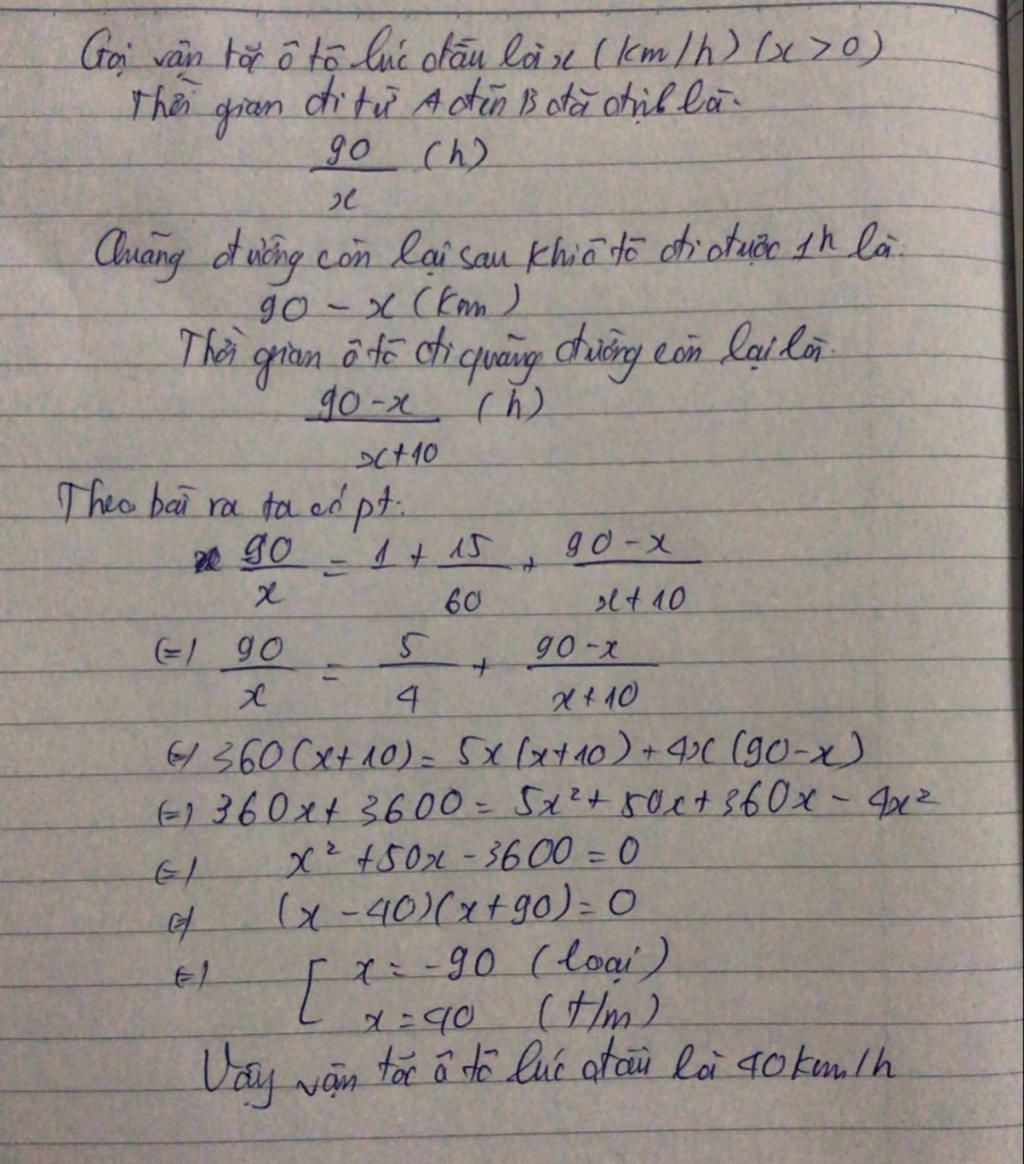 Gọi vận tốc ô tô lúc đầu là x (km/h) (x > 0)
Thời gian đi từ A đến B dã định là.
90/x (h)
Quãng đường còn lại sau khi ô tô đi được 1h là.
90 - x (km)
Thời gian ô tô đi quãng đường còn lại là.
(90-x)/(x+10) (h)
Theo bài ra ta có pt:
90/x = 1 + 15/60 + (90-x)/(x+10)
(=) 90/x = 5/4 + (90-x)/(x+10)
(=) 360(x+10) = 5x(x+10) + 4x(90-x)
(=) 360x + 3600 = 5x² + 50x + 360x - 4x²
(=) x² + 50x - 3600 = 0
(=) (x - 40)(x + 90) = 0
(=) [ x = -90 (loại)
x = 40 (t/m)
Vậy vận tốc ô tô lúc đầu là 40km/h